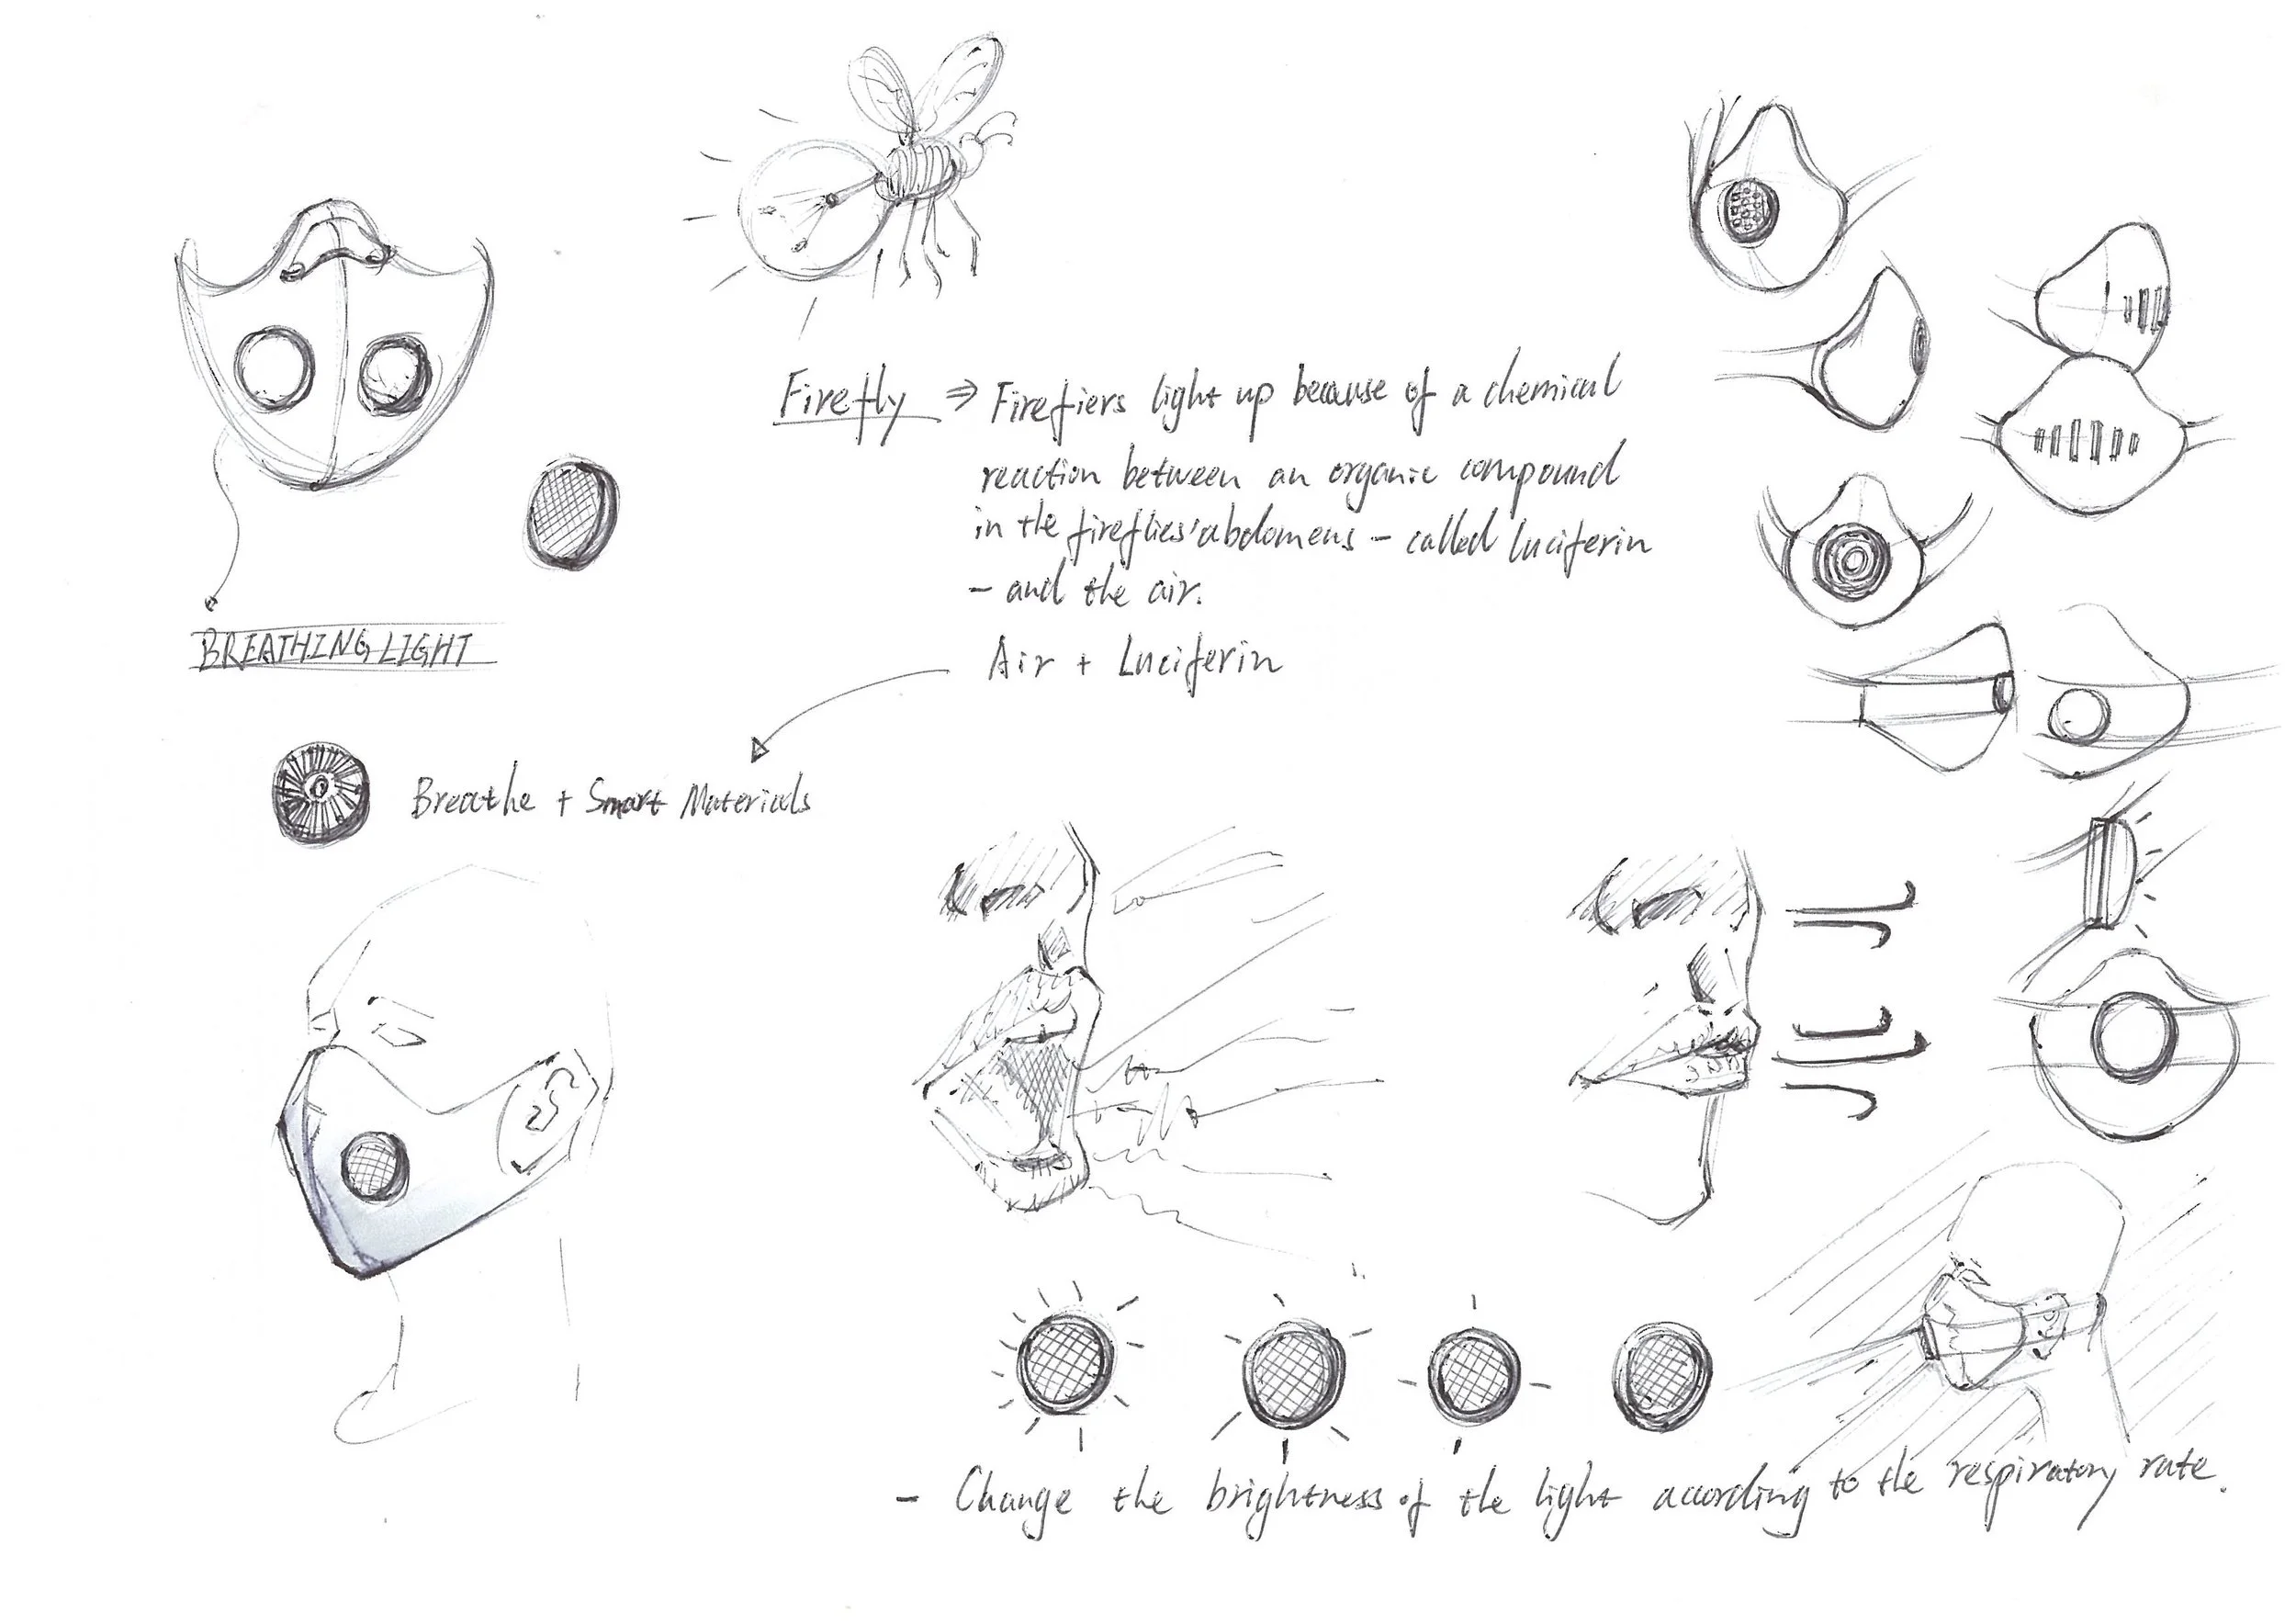 Firefly ⇒ Firefiers light up because of a chemical
reaction between an organic compound
in the fireflies' abdomens - called luciferin
- and the air.
BREATHING LIGHT
Air + Luciferin
Breathe + Smart Materials
- Change the brightness of the light according to the respiratory rate.